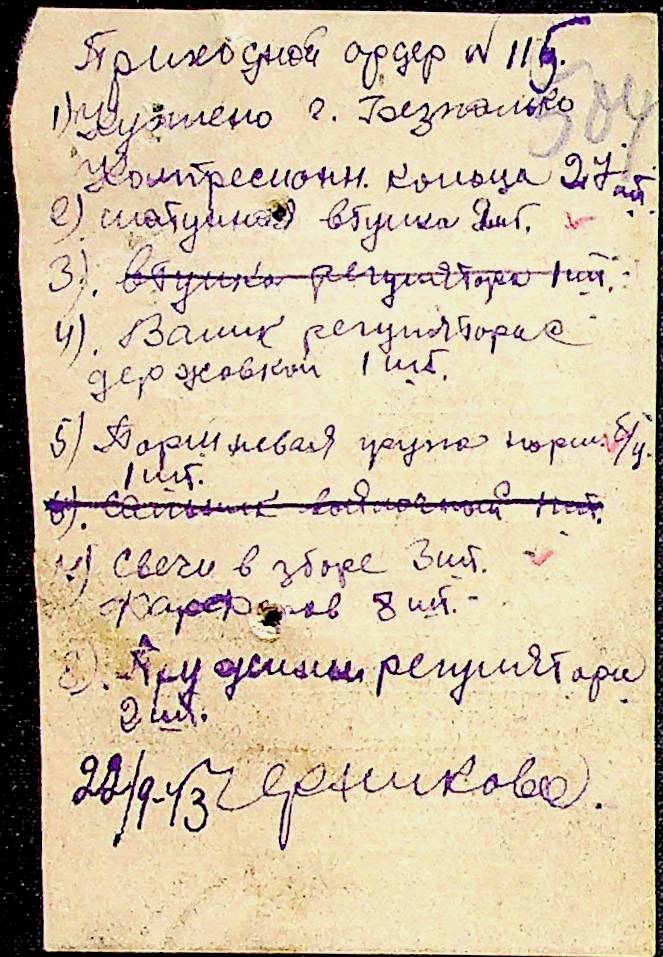 Приходной ордер № 115.
504
1) Куплено г. Безпалько
Компресионн. колоца 27 шт.
2) шатунная втулка 2шт.
3). втулка регулятора 1шт.
4). Валик регулятора с
держовкой 1 шт.
5) Поршневая група порш б/у.
1 шт.
6). Сальник войлочный 1шт.
7) Свечи в зборе 3шт.
Фарфоров 8 шт.
8). Пружины регулятора
2 шт.
22/9-43 Черникова.